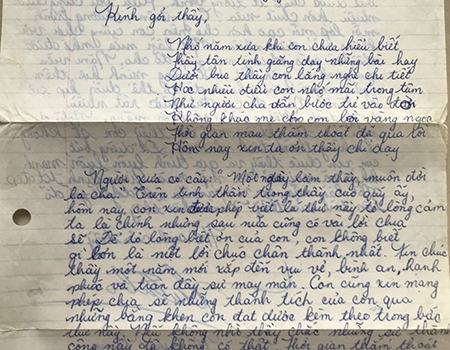 Kính gởi thầy,
Nhớ năm xưa khi con chưa hiểu biết
Thầy tận tình giảng dạy những bài hay
Dưới bục thầy con lắng nghe chi tiết
Học nhiều điều con nhớ mãi trong tâm
Như người cha dẫn bước từ vào đời
Không khác mẹ cho con lời vàng ngọc
Thời gian mau thấm thoát đã qua rồi
Hôm nay xin tạ ơn thầy chỉ dạy
Người xưa có câu: "Một ngày làm thầy, muôn đời
là cha." Trên tinh thần trong thầy cao quý ấy,
hôm nay, con xin phép viết lá thư này tỏ lòng cảm
tạ là chính nhưng sau nữa cũng có vài lời chia
sẻ. Để tỏ lòng biết ơn của con, con không biết
gì hơn là một lời chúc chân thành nhất. Xin chúc
thầy một năm mới sắp đến vui vẻ, bình an, hạnh
phúc và tràn đầy sự may mắn. Con cũng xin mang
phép chia sẻ những thành tích của con qua
những bằng khen con đạt được kèm theo trong bức
thư này. Nếu không nhờ thầy chắc những sự thành
công này đã không có thật. Thời gian thấm thoát